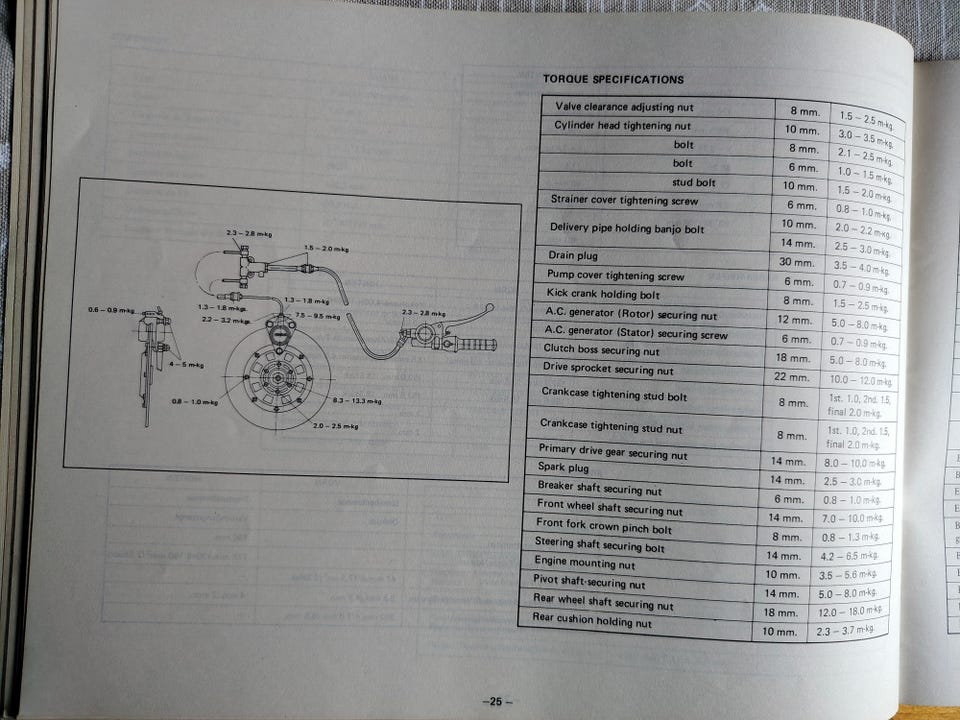 TORQUE SPECIFICATIONS
Valve clearance adjusting nut 8 mm. 1.5 – 2.5 m-kg.
Cylinder head tightening nut 10 mm. 3.0 – 3.5 m-kg.
bolt 8 mm. 2.1 – 2.5 m-kg.
bolt 6 mm. 1.0 – 1.5 m-kg.
stud bolt 10 mm. 1.5 – 2.0 m-kg.
Strainer cover tightening screw 6 mm. 0.8 – 1.0 m-kg.
Delivery pipe holding banjo bolt 10 mm. 2.0 – 2.2 m-kg.
14 mm. 2.5 – 3.0 m-kg.
Drain plug 30 mm. 3.5 – 4.0 m-kg.
Pump cover tightening screw 6 mm. 0.7 – 0.9 m-kg.
Kick crank holding bolt 8 mm. 1.5 – 2.5 m-kg.
A.C. generator (Rotor) securing nut 12 mm. 5.0 – 8.0 m-kg.
A.C. generator (Stator) securing screw 6 mm. 0.7 – 0.9 m-kg.
Clutch boss securing nut 18 mm. 5.0 – 8.0 m-kg.
Drive sprocket securing nut 22 mm. 10.0 – 12.0 m-kg.
Crankcase tightening stud bolt 8 mm. 1st. 1.0, 2nd. 1.5,
final 2.0 m-kg.
Crankcase tightening stud nut 8 mm. 1st. 1.0, 2nd. 1.5,
final 2.0 m-kg.
Primary drive gear securing nut 14 mm. 8.0 – 10.0 m-kg.
Spark plug 14 mm. 2.5 – 3.0 m-kg.
Breaker shaft securing nut 6 mm. 0.8 – 1.0 m-kg.
Front wheel shaft securing nut 14 mm. 7.0 – 10.0 m-kg.
Front fork crown pinch bolt 8 mm. 0.8 – 1.3 m-kg.
Steering shaft securing bolt 14 mm. 4.2 – 6.5 m-kg.
Engine mounting nut 10 mm. 3.5 – 5.6 m-kg.
Pivot shaft-securing nut 14 mm. 5.0 – 8.0 m-kg.
Rear wheel shaft securing nut 18 mm. 12.0 – 18.0 m-kg.
Rear cushion holding nut 10 mm. 2.3 – 3.7 m-kg.
2.3 – 2.8 m-kg
1.5 – 2.0 m-kg
0.6 – 0.9 m-kg
1.3 – 1.8 m-kg
1.3 – 1.8 m-kg
2.2 – 3.2 m-kg
7.5 – 9.5 m-kg
2.3 – 2.8 m-kg
4 – 5 m-kg
0.8 – 1.0 m-kg
8.3 – 13.3 m-kg
2.0 – 2.5 m-kg
–25 –